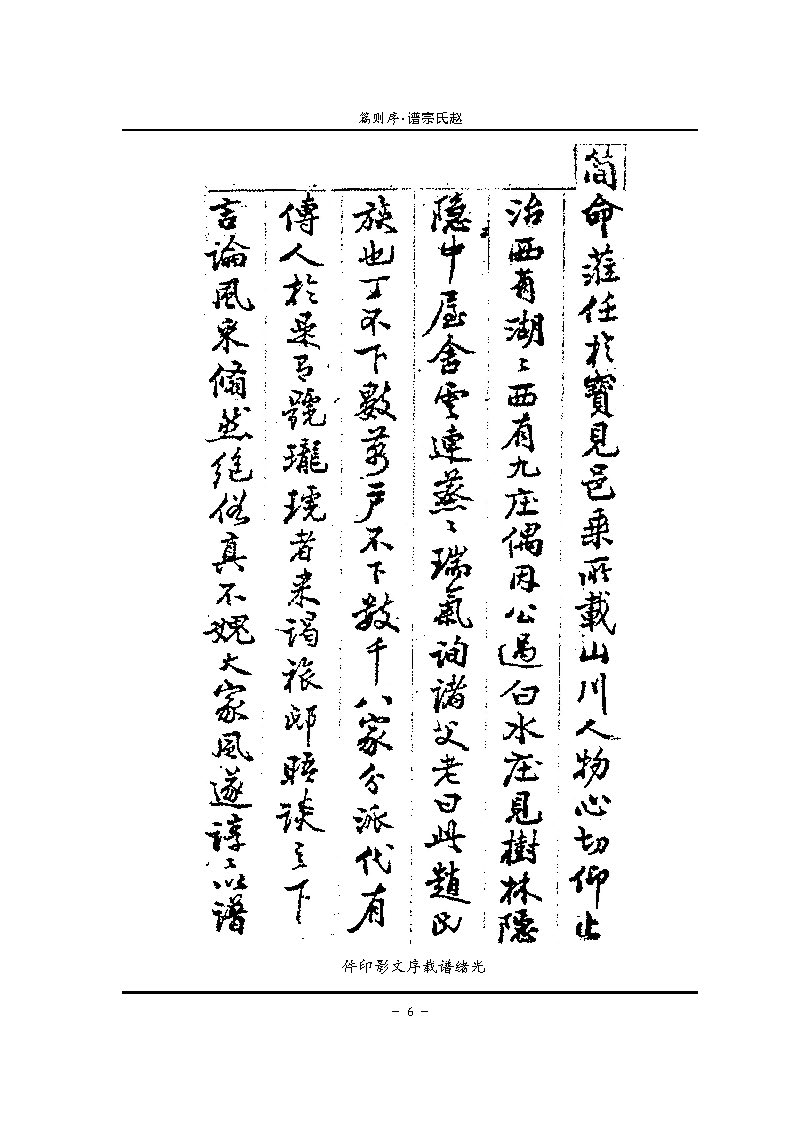 赵氏宗谱·序则篇
简命蒞任於寶見邑乘所載山川人物心切仰止
治西有湖〻西有九庄偶因公過白水庄見樹林隱
隐中屋舍雲連蒸〻瑞氣詢諸父老曰此趙氏
族也丁不下數萬戶不下数千八家分派代有
傳人於是有號瓏璄者来谒旅邸晤談之下
言論風采翛然絶俗真不媿大家風遂諄〻以譜
光绪谱载序文影印件
- 6 -